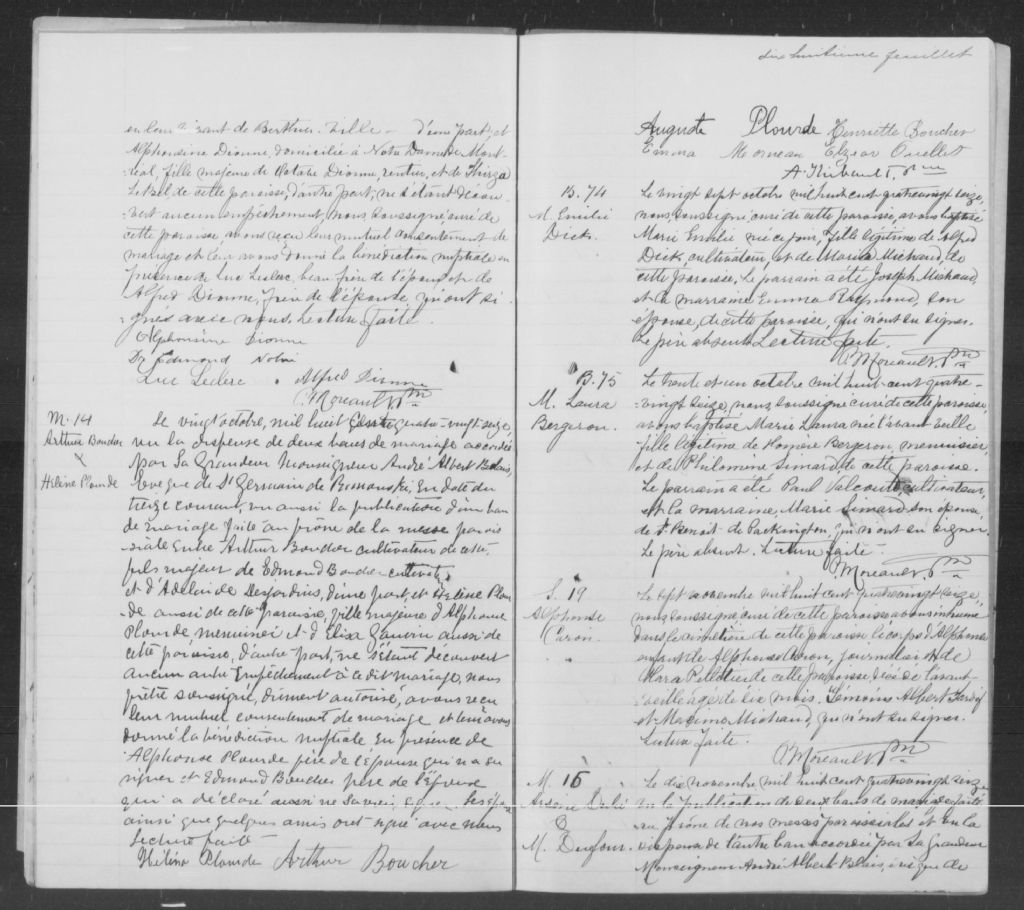 en leur vivant de Berthier-Ville - d'une part; et
Alphonsine Dionne, domiciliée à Notre Dame de Mont-
réal, fille majeure de Octave Dionne, rentier, et de
Lebel de cette paroisse, d'autre part; ne s'étant décou-
vert aucun empêchement, nous soussigné curé de
cette paroisse, avons reçu leur mutuel consentement de
mariage et leur avons donné la bénédiction nuptiale en
présence de Luc Leclerc, beau frère de l'époux et de
Alfred Dionne, frère de l'épouse, qui ont si-
gnés avec nous. Lecture faite.
Alphonsine Dionne
Dr Edmond
Luc Leclerc Alfred Dionne
O. Moreault, Ptre
M. 14
Arthur Boucher
&
Hélène Plourde
Le vingt octobre, mil huit cent quatre-vingt seize,
vu la dispense de deux bancs de mariage accordée
par Sa Grandeur Monseigneur André Albert Blais,
évêque de St Germain de Rimouski, en date du
treize courant, vu aussi la publication d'un ban
de mariage faite au prône de la messe parois-
siale entre Arthur Boucher cultivateur de cette
fils majeur de Edmond Boucher cultivateur
et d'Adelaide Desjardins, d'une part, et Hélène Plour-
de aussi de cette paroisse, fille majeure d'Alphonse
Plourde menuisier et d'Elisa Gauvin aussi de
cette paroisse, d'autre part, ne s'étant découvert
aucun autre empêchement à ce dit mariage, nous
prêtre soussigné, dûment autorisé, avons reçu
leur mutuel consentement de mariage et leur avons
donné la bénédiction nuptiale en présence de
Alphonse Plourde père de l'épouse qui n'a su
signer et Edmond Boucher père de l'époux
qui a déclaré aussi ne savoir signer. Les époux
ainsi que quelques amis ont signé avec nous
Lecture faite
Hélène Plourde Arthur Boucher
dix huitième feuillet
Auguste Plourde Henriette Boucher
Emma Morneau Elzear Ouellet
A Thibault, ptre
B. 74
M. Emilie
Dick.
Le vingt sept octobre mil huit cent quatrevingt seize,
nous, soussigné, curé de cette paroisse, avons baptisé
Marie Emilie née ce jour, fille légitime de Alfred
Dick, cultivateur, et de Maria Michaud, de
cette paroisse. Le parrain a été Joseph Michaud,
et la marraine Emma Raymond, son
épouse, de cette paroisse, qui n'ont su signer.
Le père absent. Lecture faite.
O. Moreault, Ptre
B. 75
M. Laura
Bergeron.
Le trente et un octobre mil huit-cent quatre-
vingt seize, nous, soussigné curé de cette paroisse,
avons baptisé Marie Laura née l'avant veille
fille légitime de Homère Bergeron, menuisier,
et de Philomène Simard de cette paroisse.
Le parrain a été Paul Valcourt, cultivateur,
et la marraine, Marie Simard son épouse,
de St Benoit de Packington, qui n'ont su signer.
Le père absent. Lecture faite.
O. Moreault, Ptre
S. 19
Alphonse
Caron.
Le sept novembre mil huit cent quatrevingt seize,
nous, soussigné, curé de cette paroisse avons inhumé
dans le cimetière de cette paroisse le corps d'Alphonse
enfant de Alphonse Caron, journalier et de
Clara Pelletier de cette paroisse, décédé l'avant-
veille âgé de dix mois. Témoins Albert
et Maxime Michaud, qui n'ont su signer.
Lecture faite.
O. Moreault, Ptre
M. 15
Arsène
&
M. Dufour.
Le dix novembre mil huit cent quatrevingt seize
vu la publication de deux bans de mariage faite
au prône de nos messes paroissiales et vu la
dispense de l'autre ban accordée par Sa Grandeur
Monseigneur André Albert Blais, évêque de